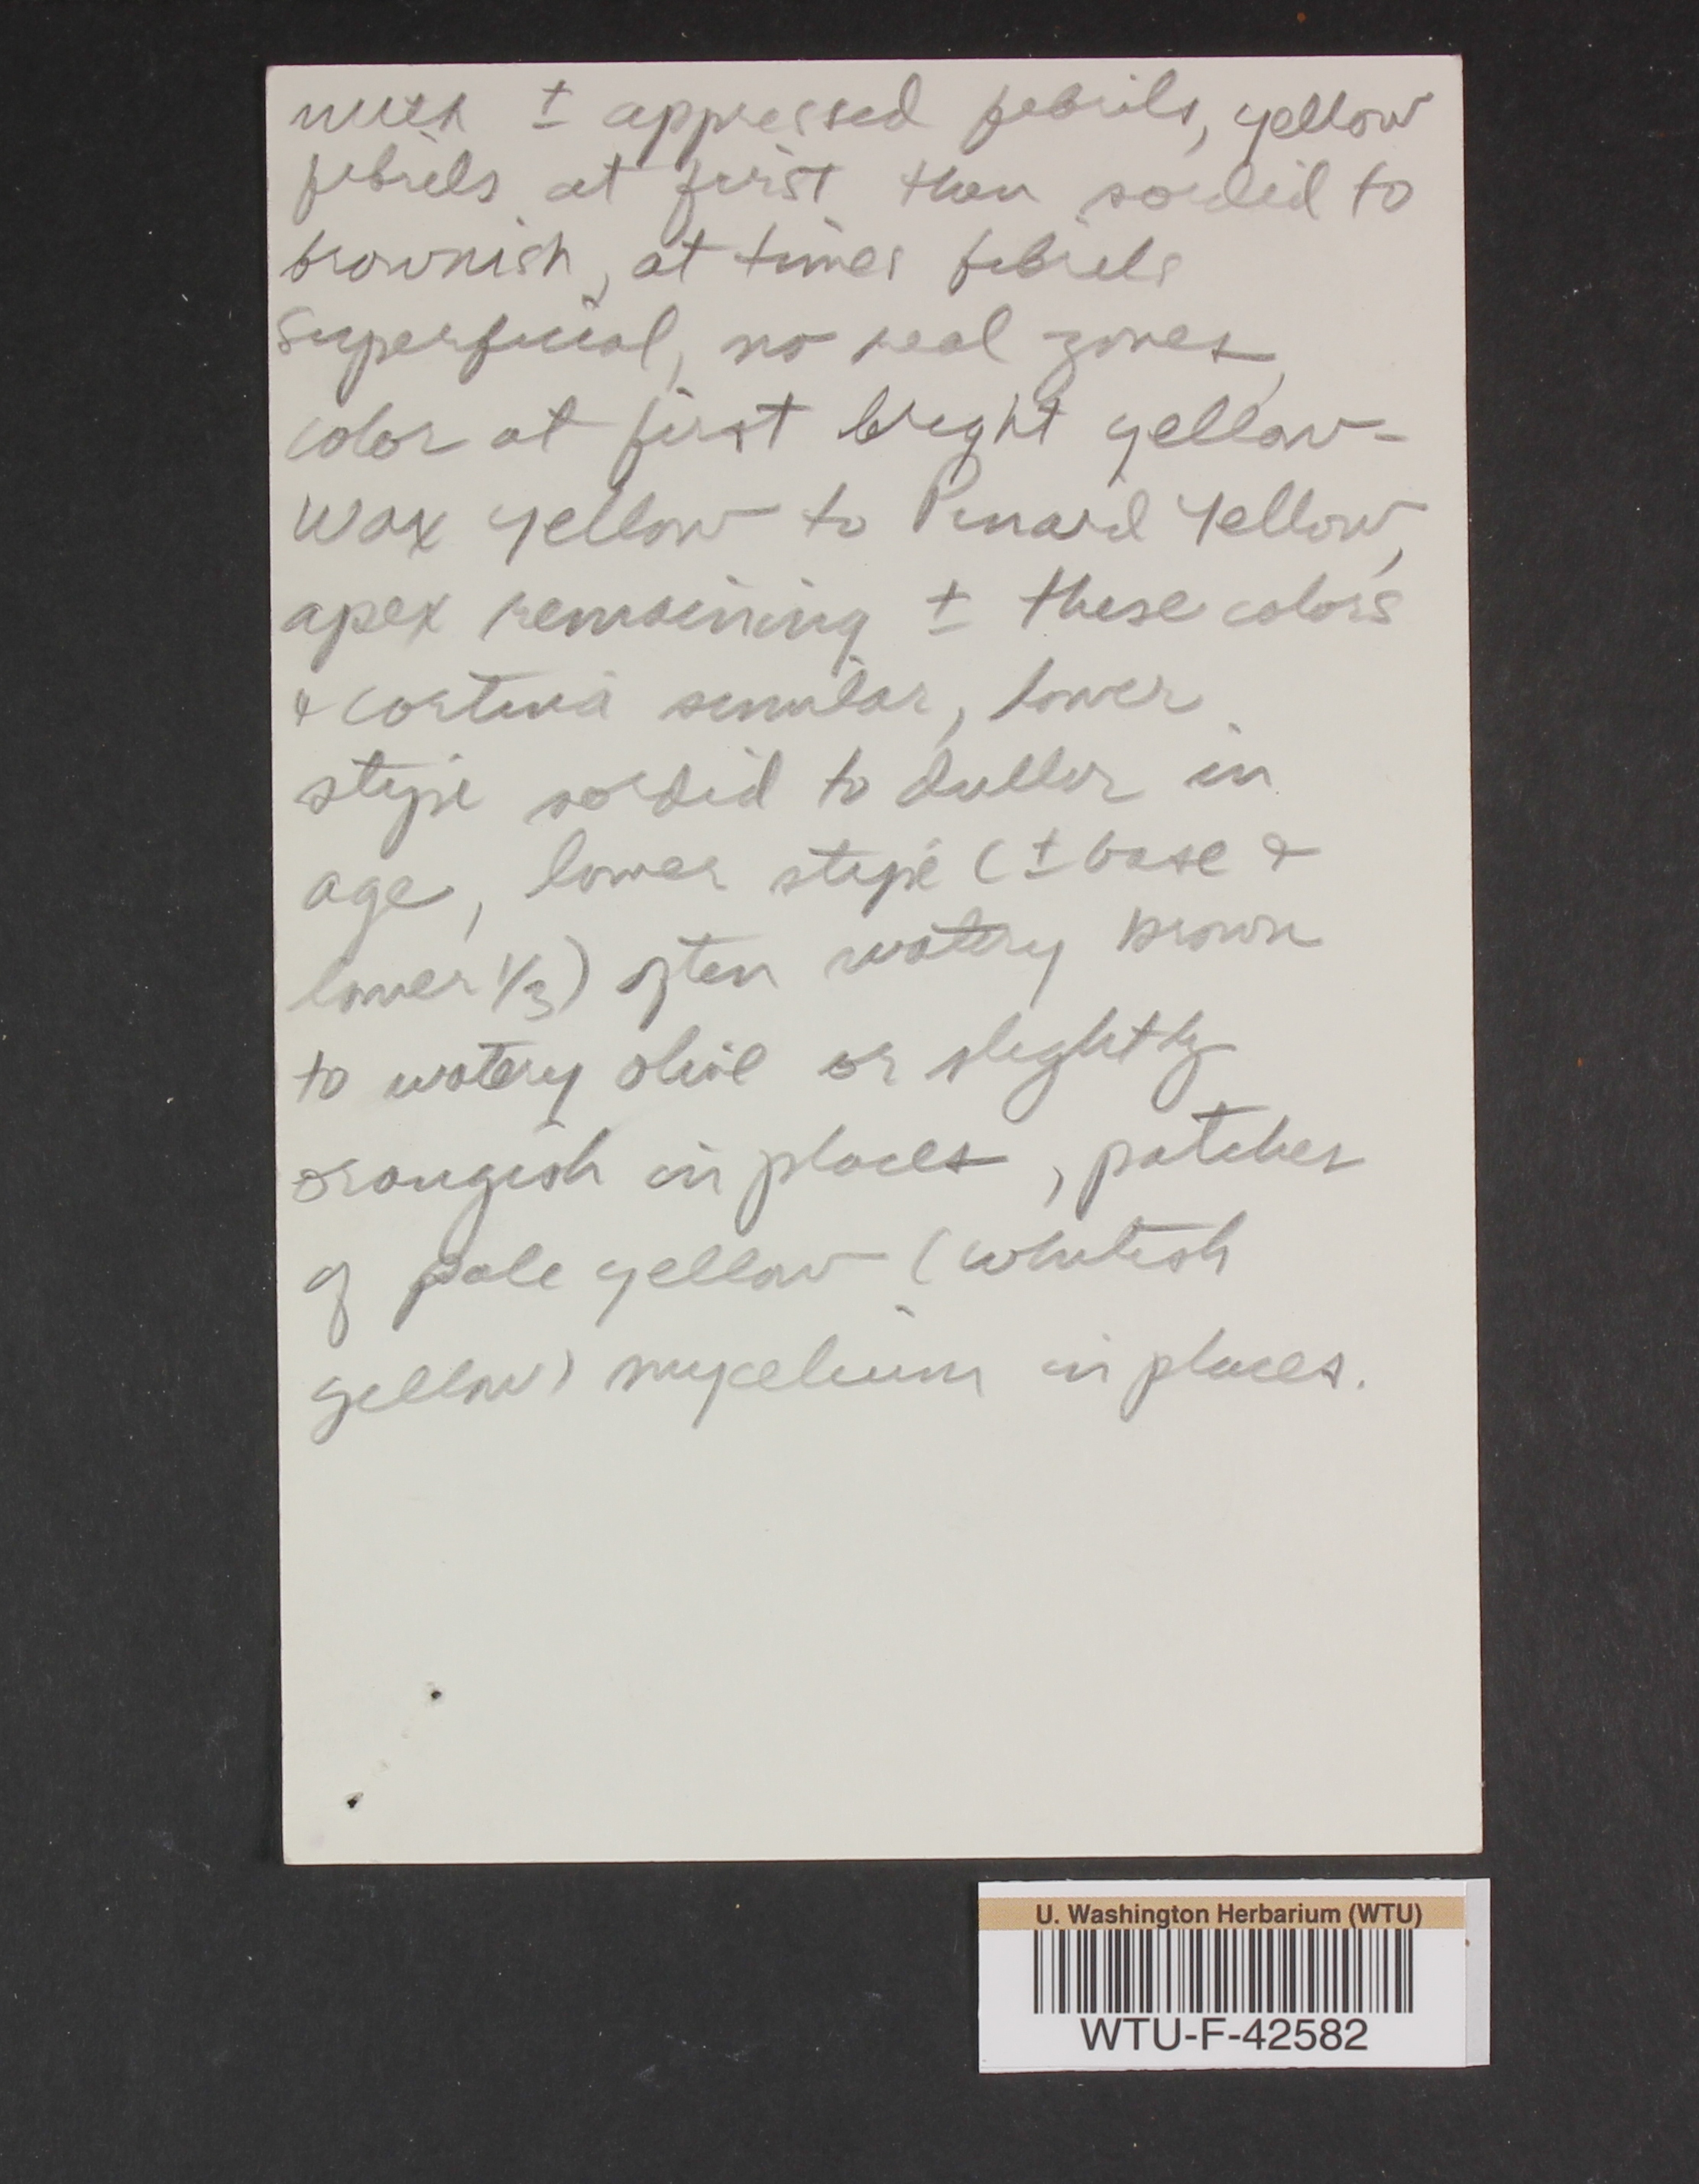 with ± appressed fibrils, yellow
fibrils at first then sordid to
brownish, at times fibrils
superficial, no real zones,
color at first bright yellow -
Wax yellow to Pinard Yellow,
apex remaining ± these colors
& cortina similar, lower
stipe sordid to duller in
age, lower stipe (± base &
lower 1/3) often watery brown
to watery olive or slightly
orangish in places, patches
of pale yellow (whitish
yellow) mycelium in places.
U. Washington Herbarium (WTU)
WTU-F-42582